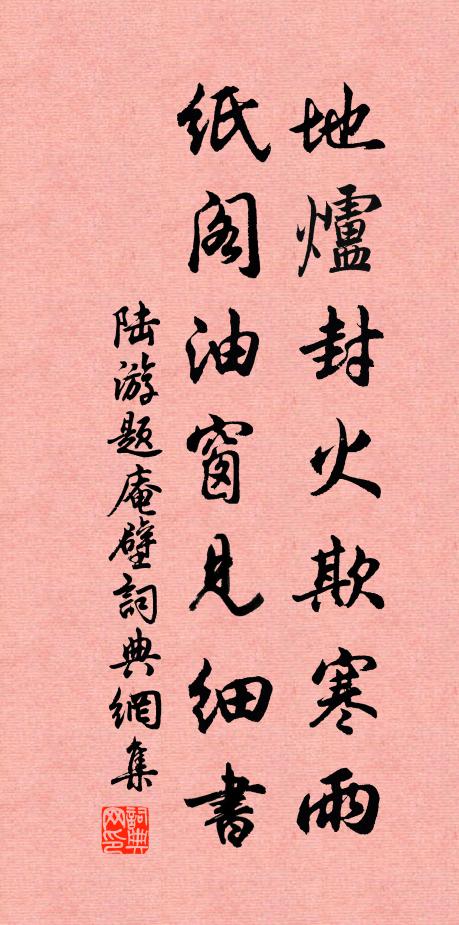 地爐封火欺寒雨
紙阁油窗見细書
陆游题庵壁詞典網集
詞典网印